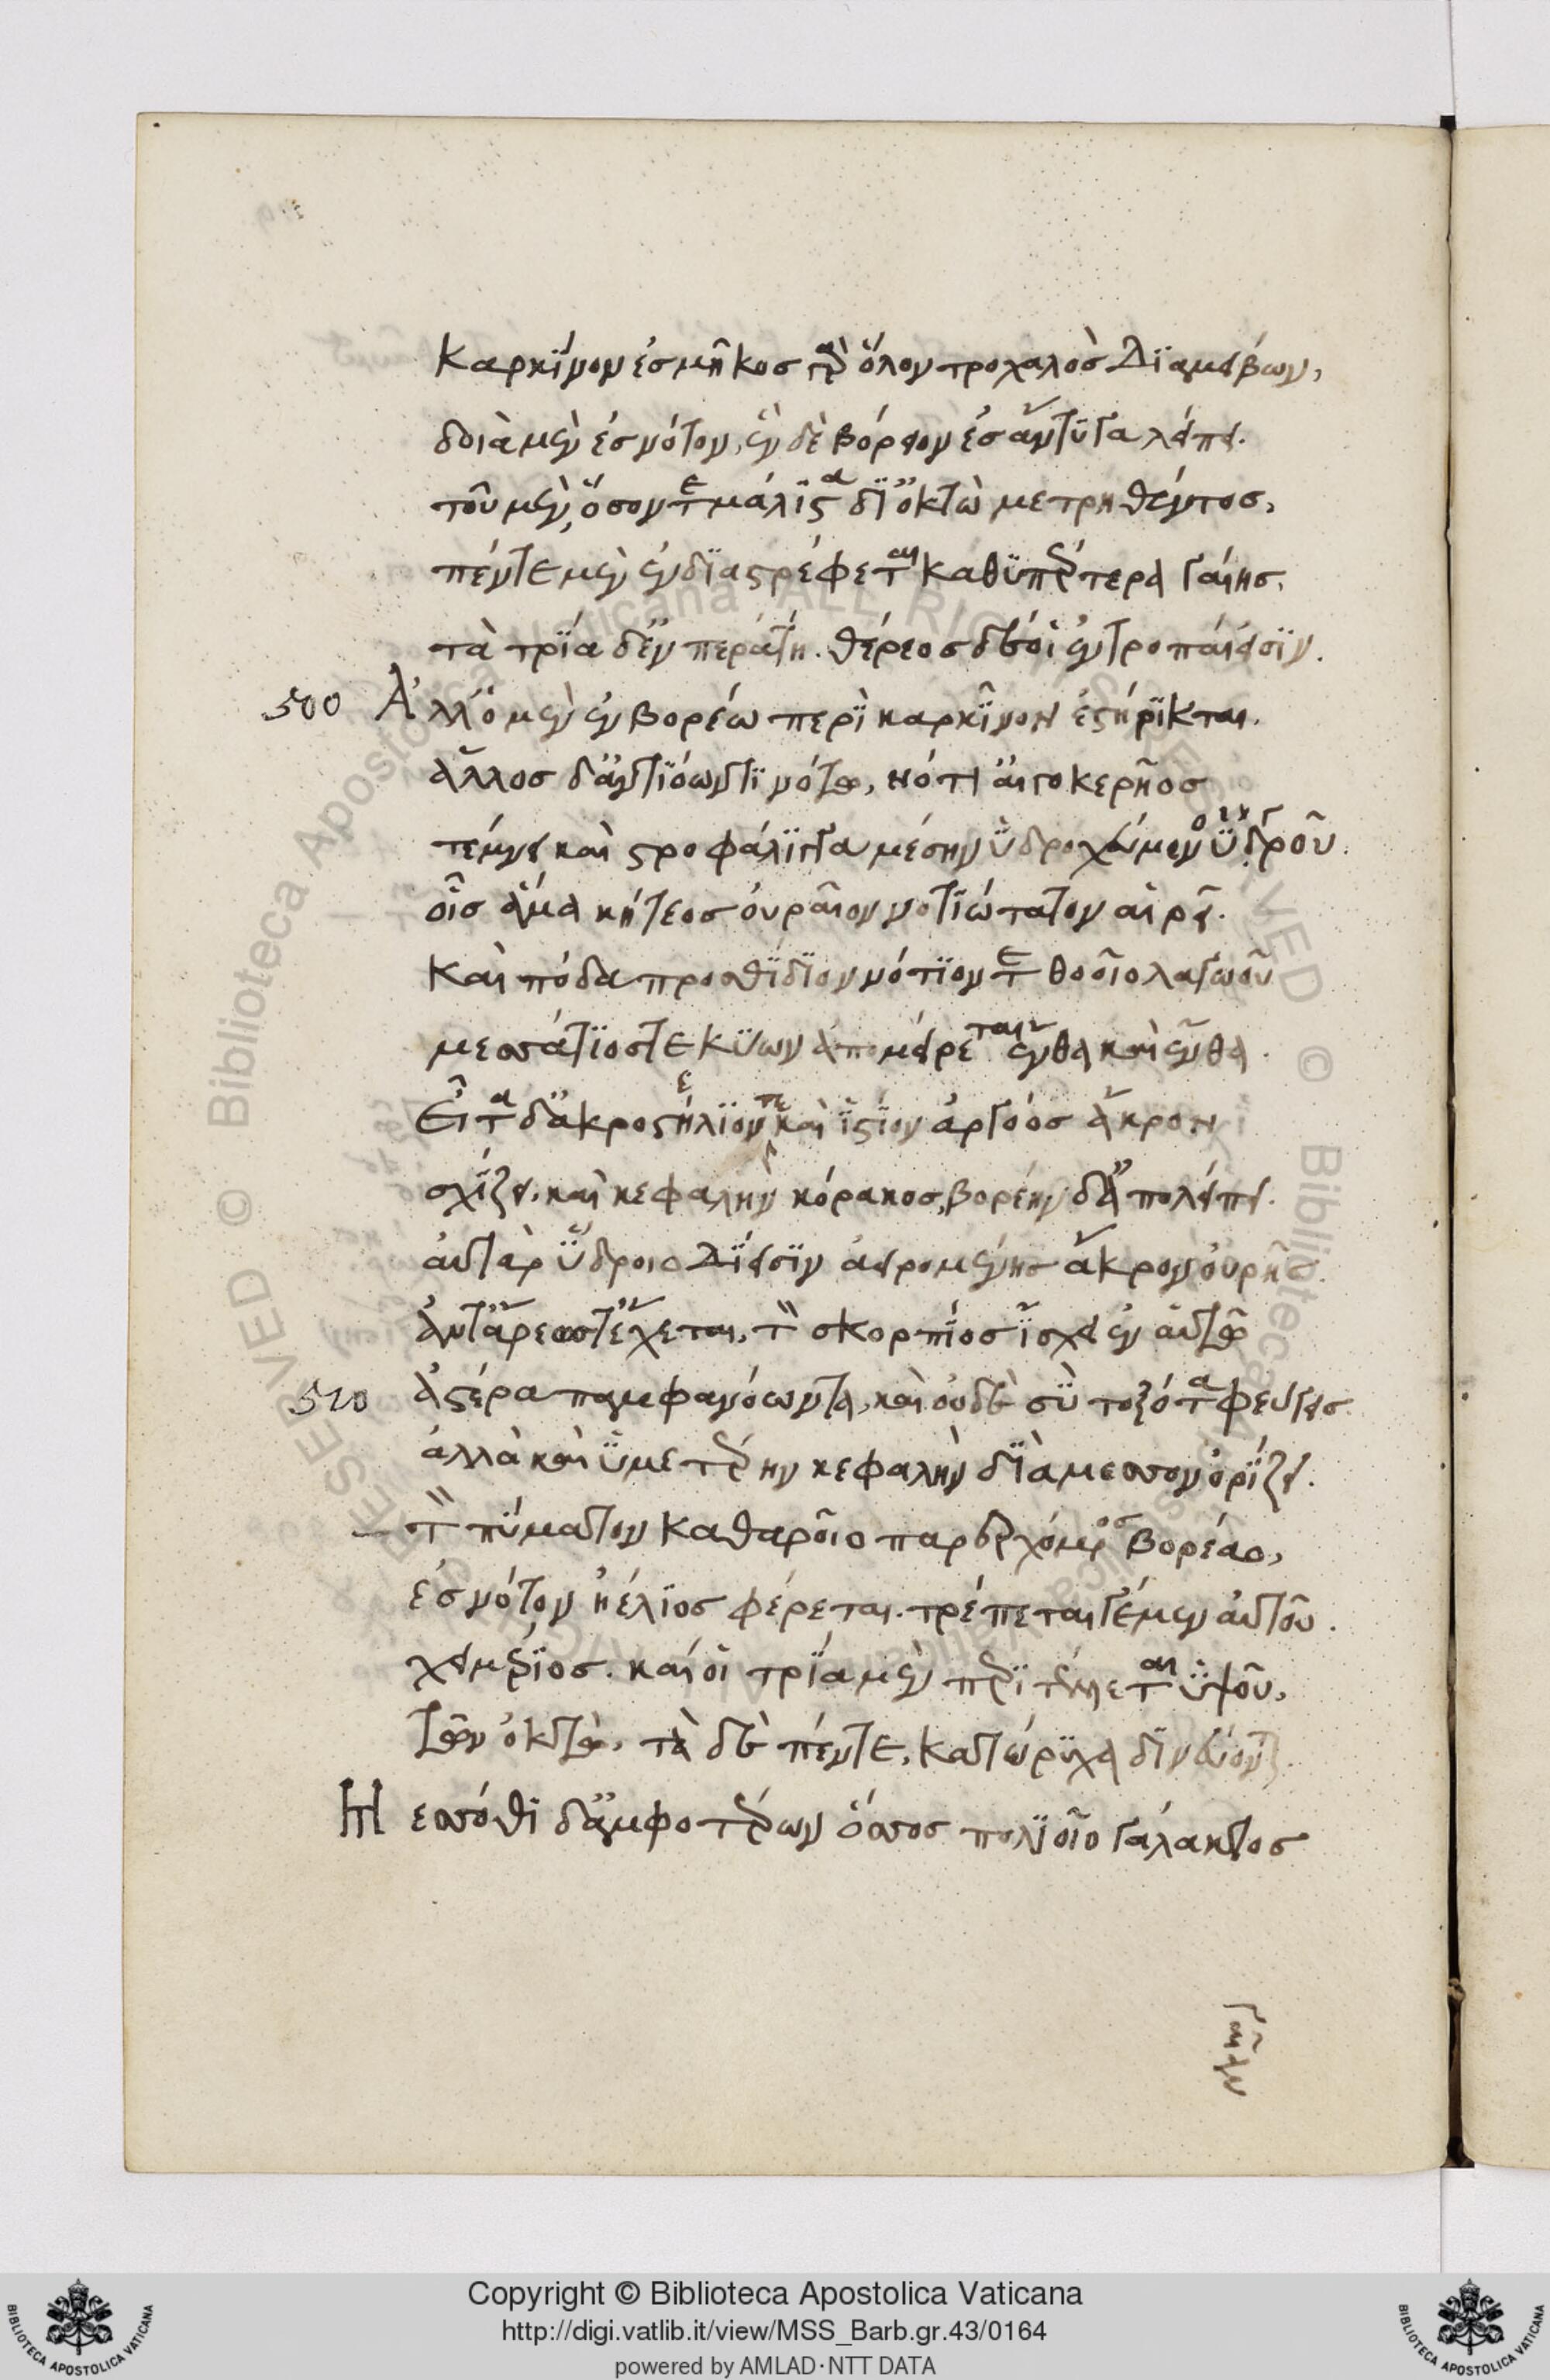 Καρκΐνον ἐσ μῆκος παρ' ὅλον τροχαλὸσ Διαμείβων,
δοιὰ μὲν ἐσ νότον, ἓν δὲ βόρειον ἐσ ἄντυγα λείπει.
τοῦ μὲν, ὅσον τε μάλιστα δι' ὀκτὼ μετρηθέντος,
πέντε μὲν ἐνδιαστρέφεται καθυπέρτερα γαίης.
τὰ τρία δ' ἐν περάτη. θέρεος δέ οἱ ἐν τροπαί εἰσιν.
500 Ἀλλ' ὁ μὲν ἐν βορέω περὶ καρκῖνον ἐστήρικται.
ἄλλος δ' ἀντιόωντι νότω, νότι' αἰγοκερῆος
τέμνει καὶ στροφάλιγγα μέσην
οἷς ἅμα κήτεος οὐραῖον νοτιώτατον αἴρει.
Καὶ πόδα προσθίδιον νότιόν τε θοοῖο λαγωοῦ
μεσσάτιός τε κύων ἀπομείρεται ἔνθα καὶ ἔνθα.
Εἶτα δ' ἄκρος ἠέλιον καὶ ἱστίον ἀργόος ἄκρον
σχίζει. καὶ κεφαλὴν κόρακος, βορέην δ' ἀπολείπει.
αὐτὰρ ὕδροιο Διίεισιν ἀειρομένης ἄκρον οὐρῆς.
ἀντάρεώς τ' ἔχεται. τὸν σκορπίος ἴσχει ἐν αὐτῶ
510 ἀστέρα παμφανόωντα, καὶ οὐδὲ σὺ τοξότα φεύγεις.
ἀλλὰ καὶ ὑμετέρην κεφαλὴν διὰ μέσσον ὁρίζει.
τὸν πύματον καθαροῖο παρερχόμενος βορέαο,
ἐς νότον ἠέλιος φέρεται. τρέπεταί γε μὲν αὐτοῦ.
χειμέριος. καί οἱ τρία μὲν περιτέλλεται ὑψοῦ,
τῶν ὀκτὼ, τὰ δὲ πέντε, κατώρυχα δινεύουσι
Ἡ εσσόθι δ' ἀμφοτέρων ὅσσος πολιοῖο γάλακτος
Copyright © Biblioteca Apostolica Vaticana
http://digi.vatlib.it/view/MSS_Barb.gr.43/0164
powered by AMLAD·NTT DATA